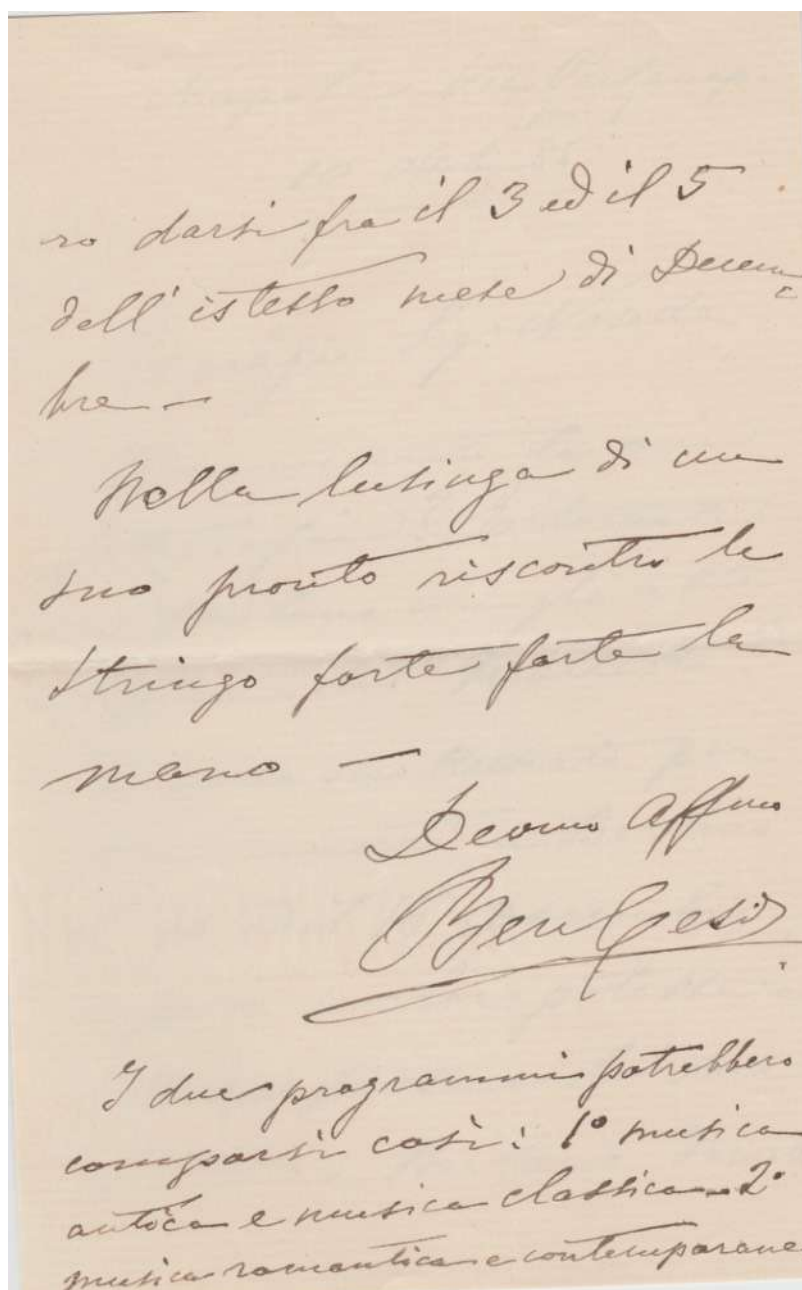 ro darsi fra il 3 ed il 5
dell'istesso mese di Decem
bre —
Nella lusinga di un
suo pronto riscontro le
stringo forte forte la
mano —
Devmo Affmo
BenCesi
I due programmi potrebbero
comporsi così: 1° musica
antica e musica classica - 2°
musica romantica e contemporane